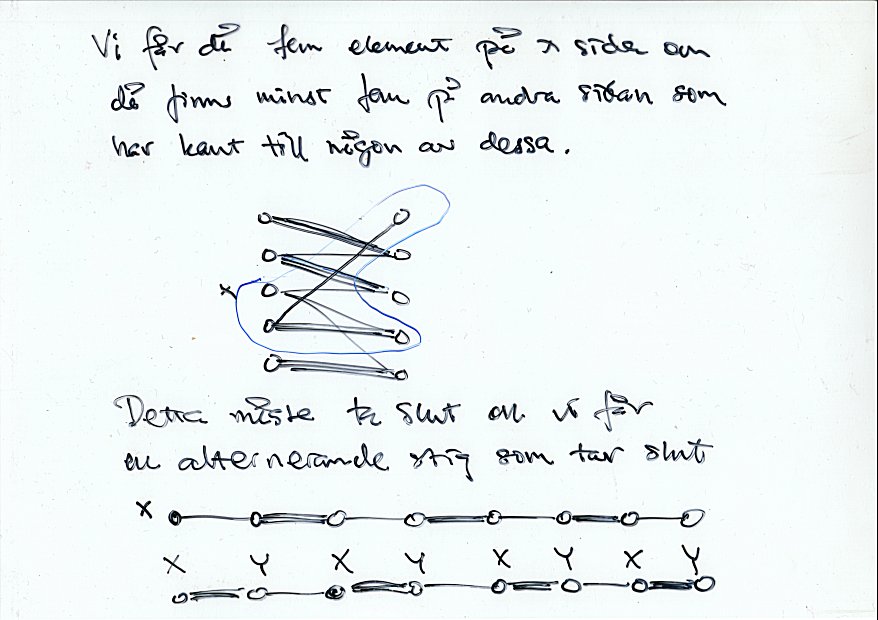 Vi får då fem element på x sida om
då finns minst fem på andra sidan som
har kant till någon av dessa.
x
Detta måste ta slut och vi får
en alternerande stig som tar slut
X
X Y X Y X Y X Y